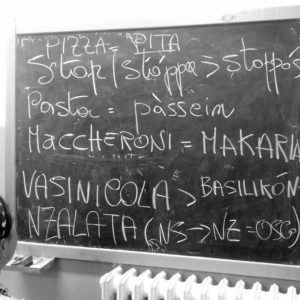 PIZZA = PITA
Stop / Stóppa > stoppós
Pasta = pàssein
MACCHERONI = MAKARIA
VASINICOLA > BASILIKÓN
NZALATA (NS → NZ = OSC)